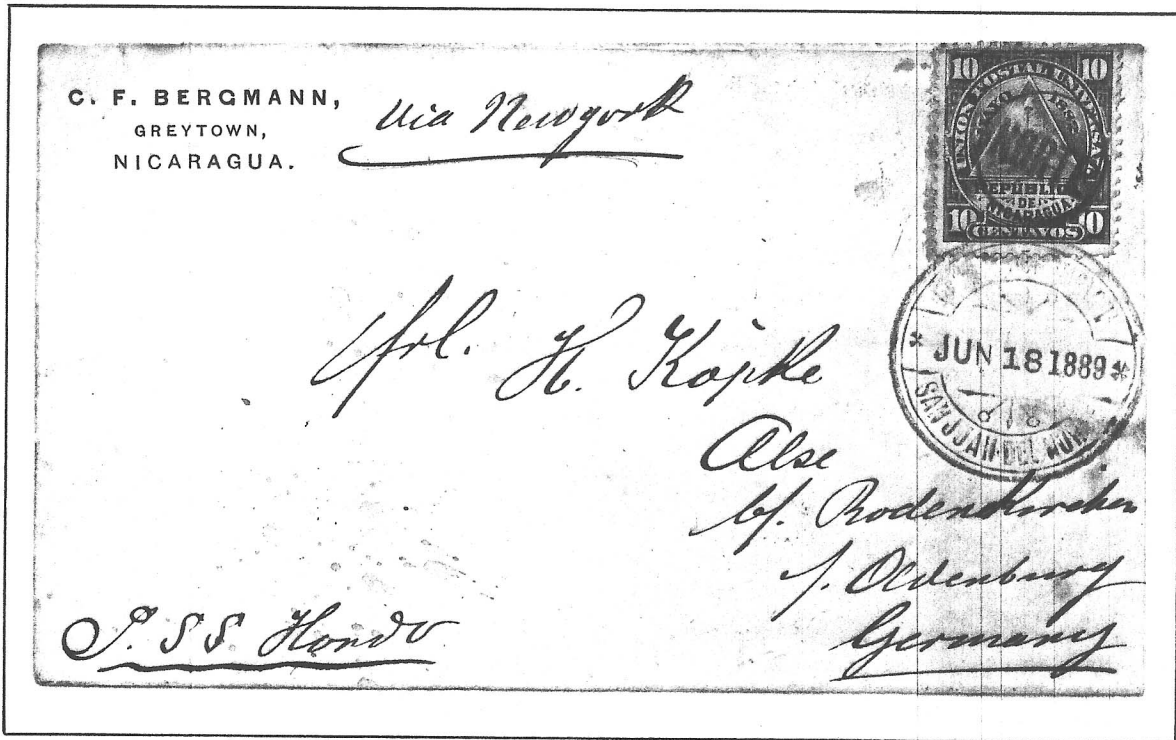 C. F. BERGMANN,
GREYTOWN,
NICARAGUA.
Via Newyork
10 10
UNION POSTAL UNIVERSAL
MAYO 1882
REPUBLICA
DE
NICARAGUA
10 10
CENTAVOS
JUN 18 1889
SAN JUAN DEL
Frl. H. Köpke
Alse
b/. Rodenkirchen
/. Oldenburg
Germany
P. SS Hondo